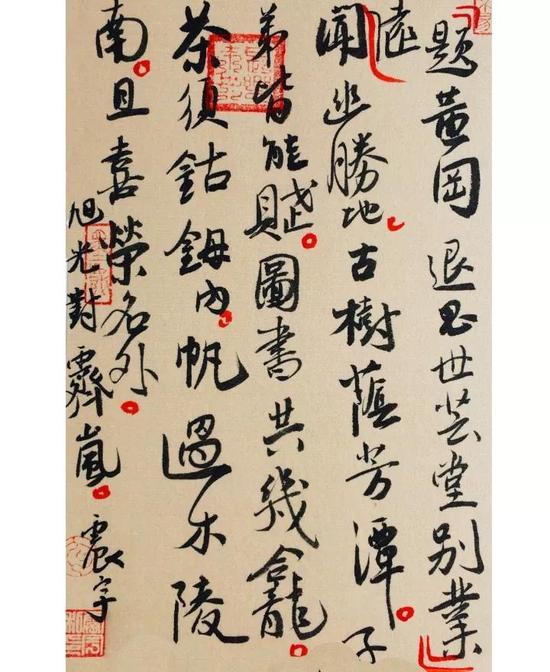 題黃岡退思世芸堂别業
遠
聞幽勝地古樹蔭芳潭子
弟皆能賦圖書共幾龕
茶須鈷鉧内帆過木陵
南且喜榮名外
旭光對霽嵐震宇